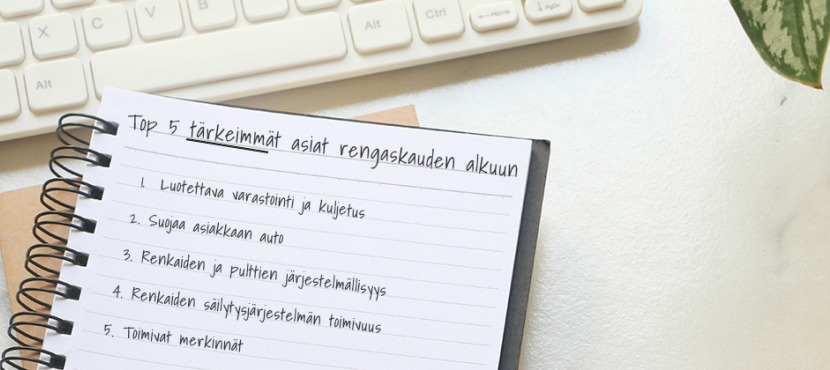 X C V B Alt Ctrl ←Home ↓PgDn
Alt
Top 5 tärkeimmät asiat rengaskauden alkuun
1. Luotettava varastointi ja kuljetus
2. Suojaa asiakkaan auto
3. Renkaiden ja pulttien järjestelmällisyys
4. Renkaiden säilytysjärjestelmän toimivuus
5. Toimivat merkinnät